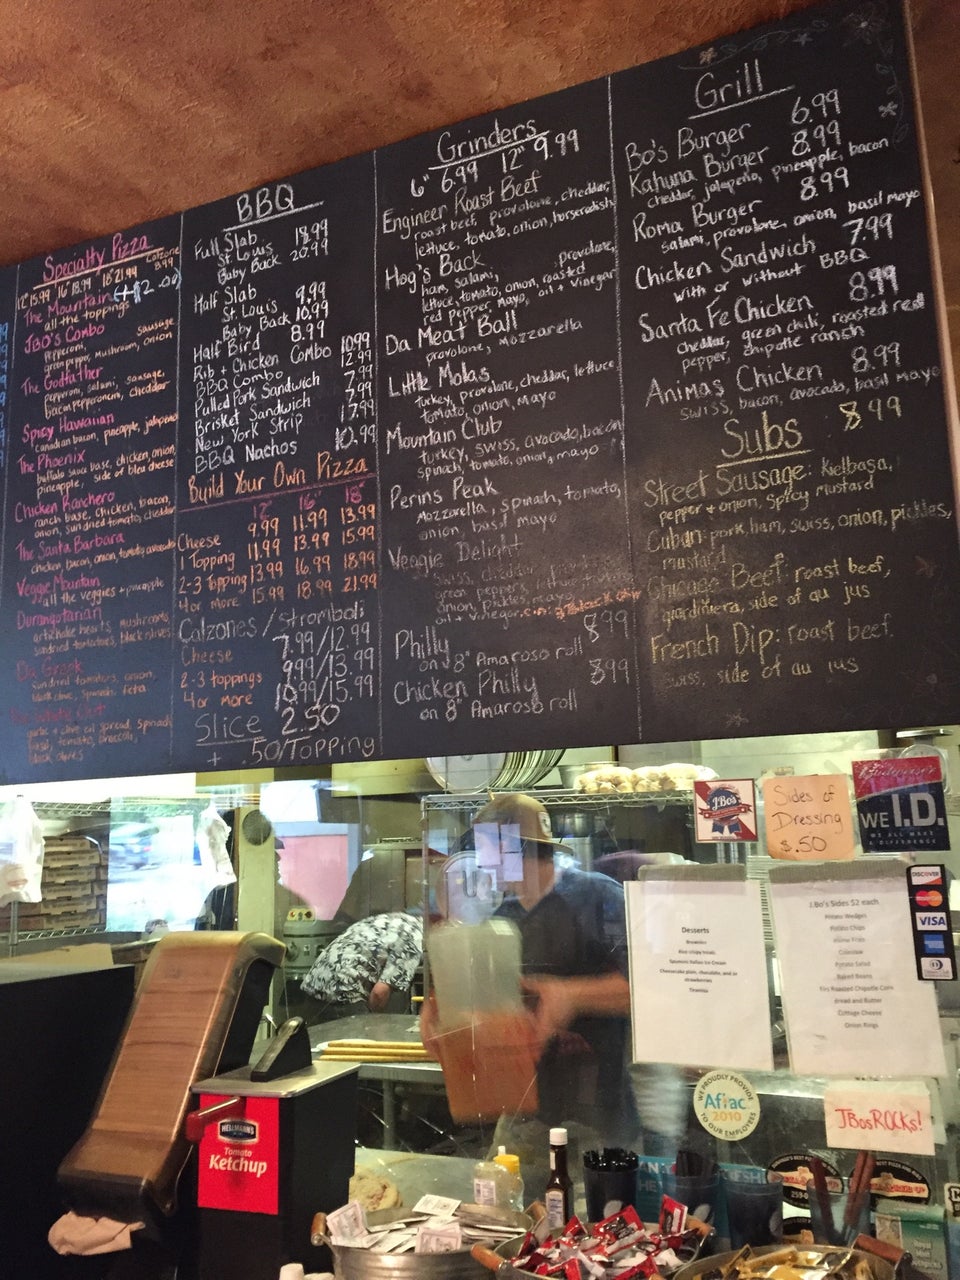 Specialty Pizza
12" 15.99 16" 18.99 18" 21.99
Calzone
8.99
The Mountain (+$2.00)
all the toppings
JBO's Combo
Pepperoni, sausage
green pepper, mushroom, onion
The Godfather
pepperoni, salami, sausage,
bacon, pepperoncini, cheddar
Spicy Hawaiian
canadian bacon, pineapple, jalapeno
The Phoenix
buffalo sauce base, chicken, onion
pineapple, side of bleu cheese
Chicken Ranchero
ranch base, chicken, bacon,
onion, sundried tomato, cheddar
The Santa Barbara
chicken, bacon, onion, tomato, avocado
Veggie Mountain
all the veggies + pineapple
Durangotarian
artichoke hearts, mushrooms,
sundried tomatoes, black olives
Da Greek
sundried tomatoes, onion,
black olive, spinach, feta
White Out
garlic + olive oil spread, spinach
basil, tomato, broccoli,
black olives
BBQ
Full Slab
St. Louis 18.99
Baby Back 20.99
Half Slab
St. Louis 9.99
Baby Back 10.99
Half Bird 8.99
Rib + Chicken Combo 10.99
BBQ Combo 12.99
Pulled Pork Sandwich 7.99
Brisket Sandwich 7.99
New York Strip 17.99
BBQ Nachos 10.99
Build Your Own Pizza
12" 16" 18"
Cheese 9.99 11.99 13.99
1 Topping 11.99 13.99 15.99
2-3 Topping 13.99 16.99 18.99
4 or more 15.99 18.99 21.99
Calzones / stromboli
Cheese 7.99/12.99
2-3 toppings 9.99/13.99
4 or more 10.99/15.99
Slice 2.50
+ .50/Topping
Grinders
6" 6.99 12" 9.99
Engineer Roast Beef
roast beef, provolone, cheddar,
lettuce, tomato, onion, horseradish
Hog's Back
ham, salami, provolone,
lettuce, tomato, onion, roasted
red pepper mayo, oil + vinegar
Da Meat Ball
provolone, mozzarella
Little Molas
turkey, provolone, cheddar, lettuce
tomato, onion, mayo
Mountain Club
turkey, swiss, avocado, bacon
spinach, tomato, onion, mayo
Perins Peak
Mozzarella, spinach, tomato,
onion, basil mayo
Veggie Delight
swiss, cheddar,
green peppers,
onion, pickles, mayo
oil + vinegar
Philly 8.99
on 8" Amaroso roll
Chicken Philly 8.99
on 8" Amaroso roll
Grill
Bo's Burger 6.99
Kahuna Burger 8.99
cheddar, jalapeño, pineapple, bacon
Roma Burger 8.99
salami, provolone, onion, basil mayo
Chicken Sandwich 7.99
with or without BBQ
Santa Fe Chicken 8.99
cheddar, green chili, roasted red
pepper, chipotle ranch
Animas Chicken 8.99
swiss, bacon, avocado, basil mayo
Subs 8.99
Street Sausage: Kielbasa,
pepper + onion, spicy mustard
Cuban: pork, ham, swiss, onion, pickles,
mustard
Chicago Beef: roast beef,
giardiniera, side of au jus
French Dip: roast beef,
swiss, side of au jus
J.Bo's
Sides of
Dressing
$.50
Budweiser
WE I.D.
WE ALL MAKE
A DIFFERENCE
DISCOVER
MasterCard
VISA
Desserts
Brownies
Rice crispy treats
Spumoni Italian Ice Cream
Cheesecake plain, chocolate, and or
strawberries
Tiramisu
J.Bo's Sides $2 each
Potato Wedges
Potato Chips
Home Fries
Coleslaw
Potato Salad
Baked Beans
Fire Roasted Chipotle Corn
Bread and Butter
Cottage Cheese
Onion Rings
WE PROUDLY PROVIDE
Aflac
2010
TO OUR EMPLOYEES
JBosROCKs!
HELLMANN'S
Tomato
Ketchup